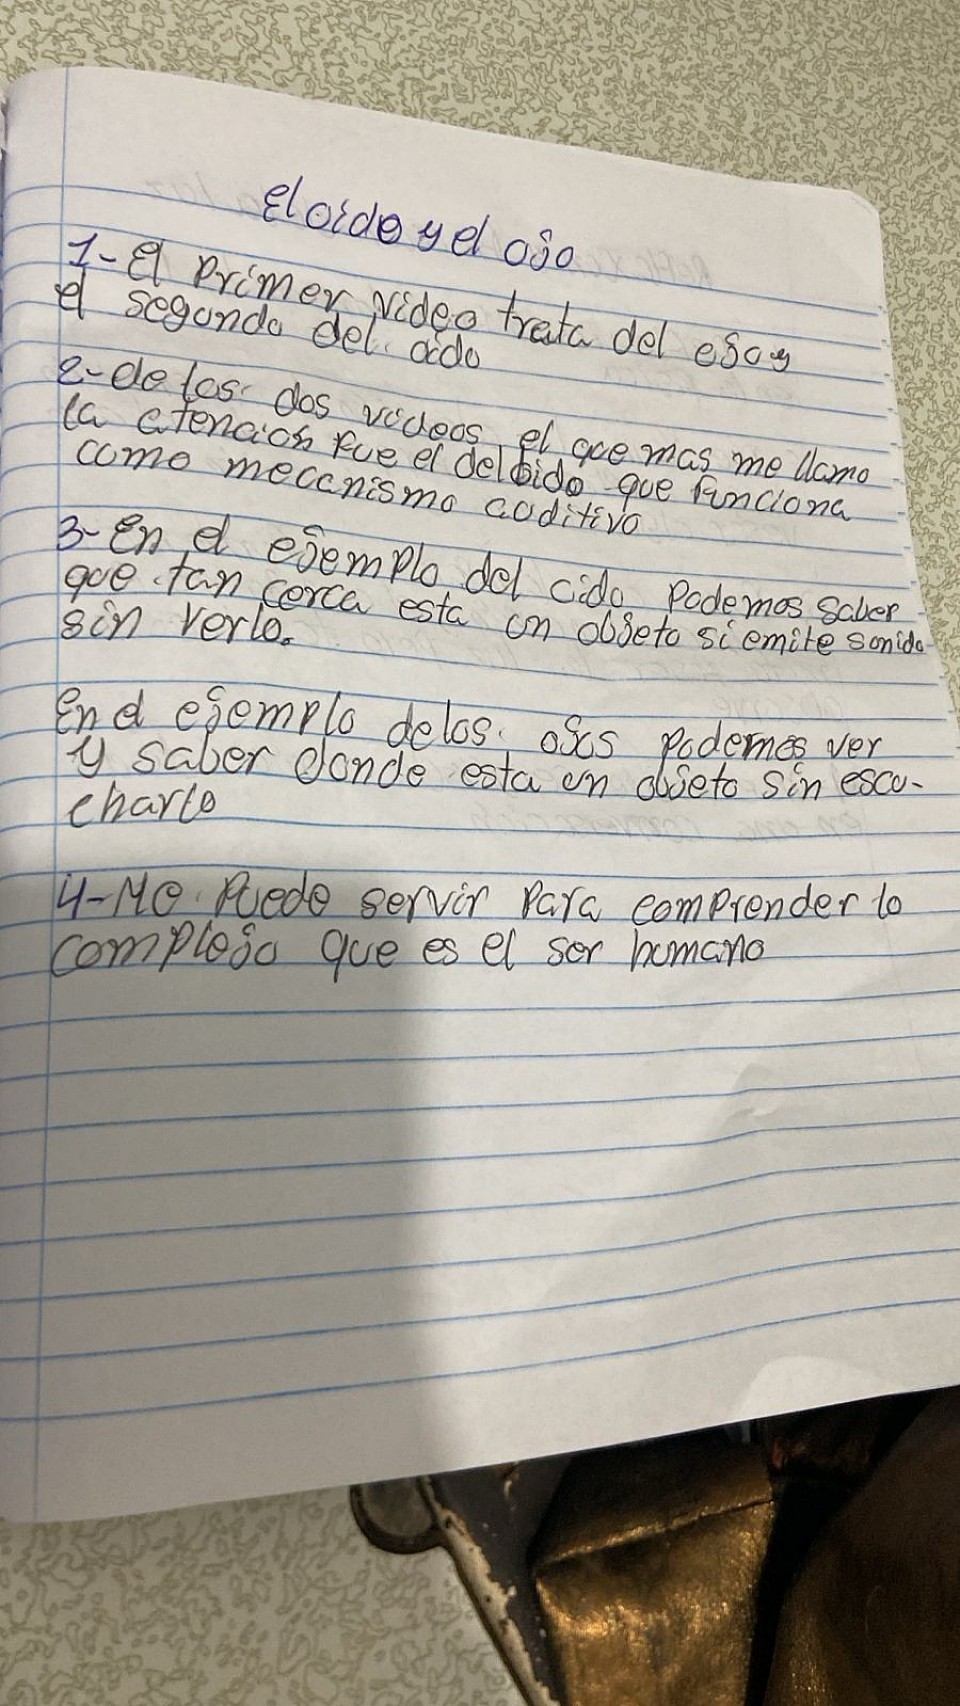 El oido y el ojo
1- El Primer video trata del ojo y
el segundo del oido
2- de los dos videos el que mas me llamo
la atencion fue el del oido que funciona
como mecanismo auditivo
3- En el ejemplo del oido Podemos saber
que tan cerca esta un objeto si emite sonido
sin verlo.
En el ejemplo de los ojos podemos ver
y saber donde esta un objeto sin escu-
charlo
4- Me Puede servir Para comprender lo
complejo que es el ser humano